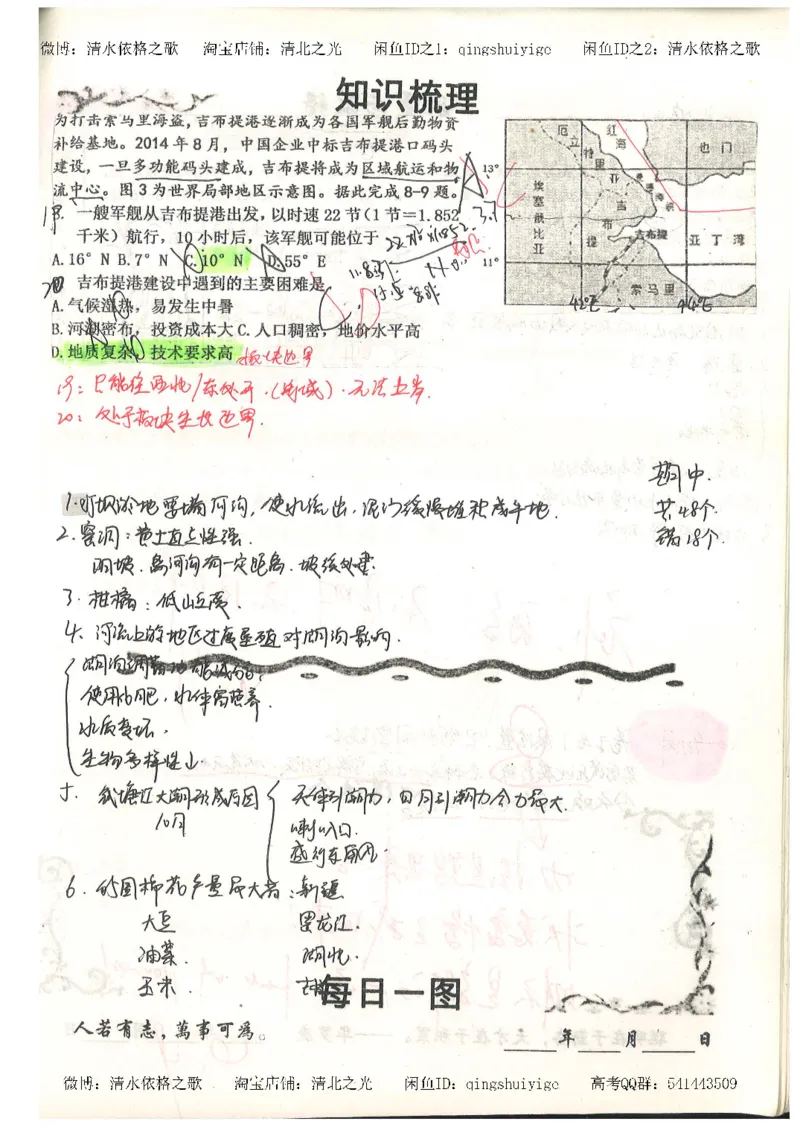 微博：清水依格之歌 淘宝店铺：清北之光 闲鱼ID之1：qingshuiyige 闲鱼ID之2：清水依格之歌
知识梳理
为打击索马里海盗，吉布提港逐渐成为各国军舰后勤物资
补给基地。2014年8月，中国企业中标吉布提港口码头
建设，一旦多功能码头建成，吉布提将成为区域航运和物
流中心。图3为世界局部地区示意图。据此完成8-9题。
19. 一艘军舰从吉布提港出发，以时速22节(1节=1.852
千米)航行，10小时后，该军舰可能位于
A.16°N B.7°N C.10°N D.55°E
20 吉布提港建设中遇到的主要困难是
A.气候湿热，易发生中暑
B.河湖密布，投资成本大 C.人口稠密，地价水平高
D.地质复杂，技术要求高 板块边界
厄立特里亚
红海
也门
13°
埃塞俄比亚
吉布提
吉布提
亚丁湾
11°
索马里
42°E
44°E
19：只能往西北/东北开.(海域).无法上岸.
20：处于板块生长边界.
期中.
共48个.
错18个.
1.
2. 窑洞：黄土直立性强.
阳坡.离河沟有一定距离.坡缓处建.
3. 柑橘：低山丘陵.
4. 河流上游地区过度垦殖对湖泊影响.
使用化肥，水体富营养.
水质变坏.
生物多样性↓.
5. 钱塘江大潮形成原因
10月
天体引潮力，日月引潮力合力最大.
喇叭口.
盛行东南风.
6. 我国棉花产量最大省：新疆
大豆 黑龙江.
油菜. 湖北.
玉米. 吉林
每日一图
人若有志，萬事可為。
年 月 日
微博：清水依格之歌 淘宝店铺：清北之光 闲鱼ID：qingshuiyige 高考QQ群：541443509